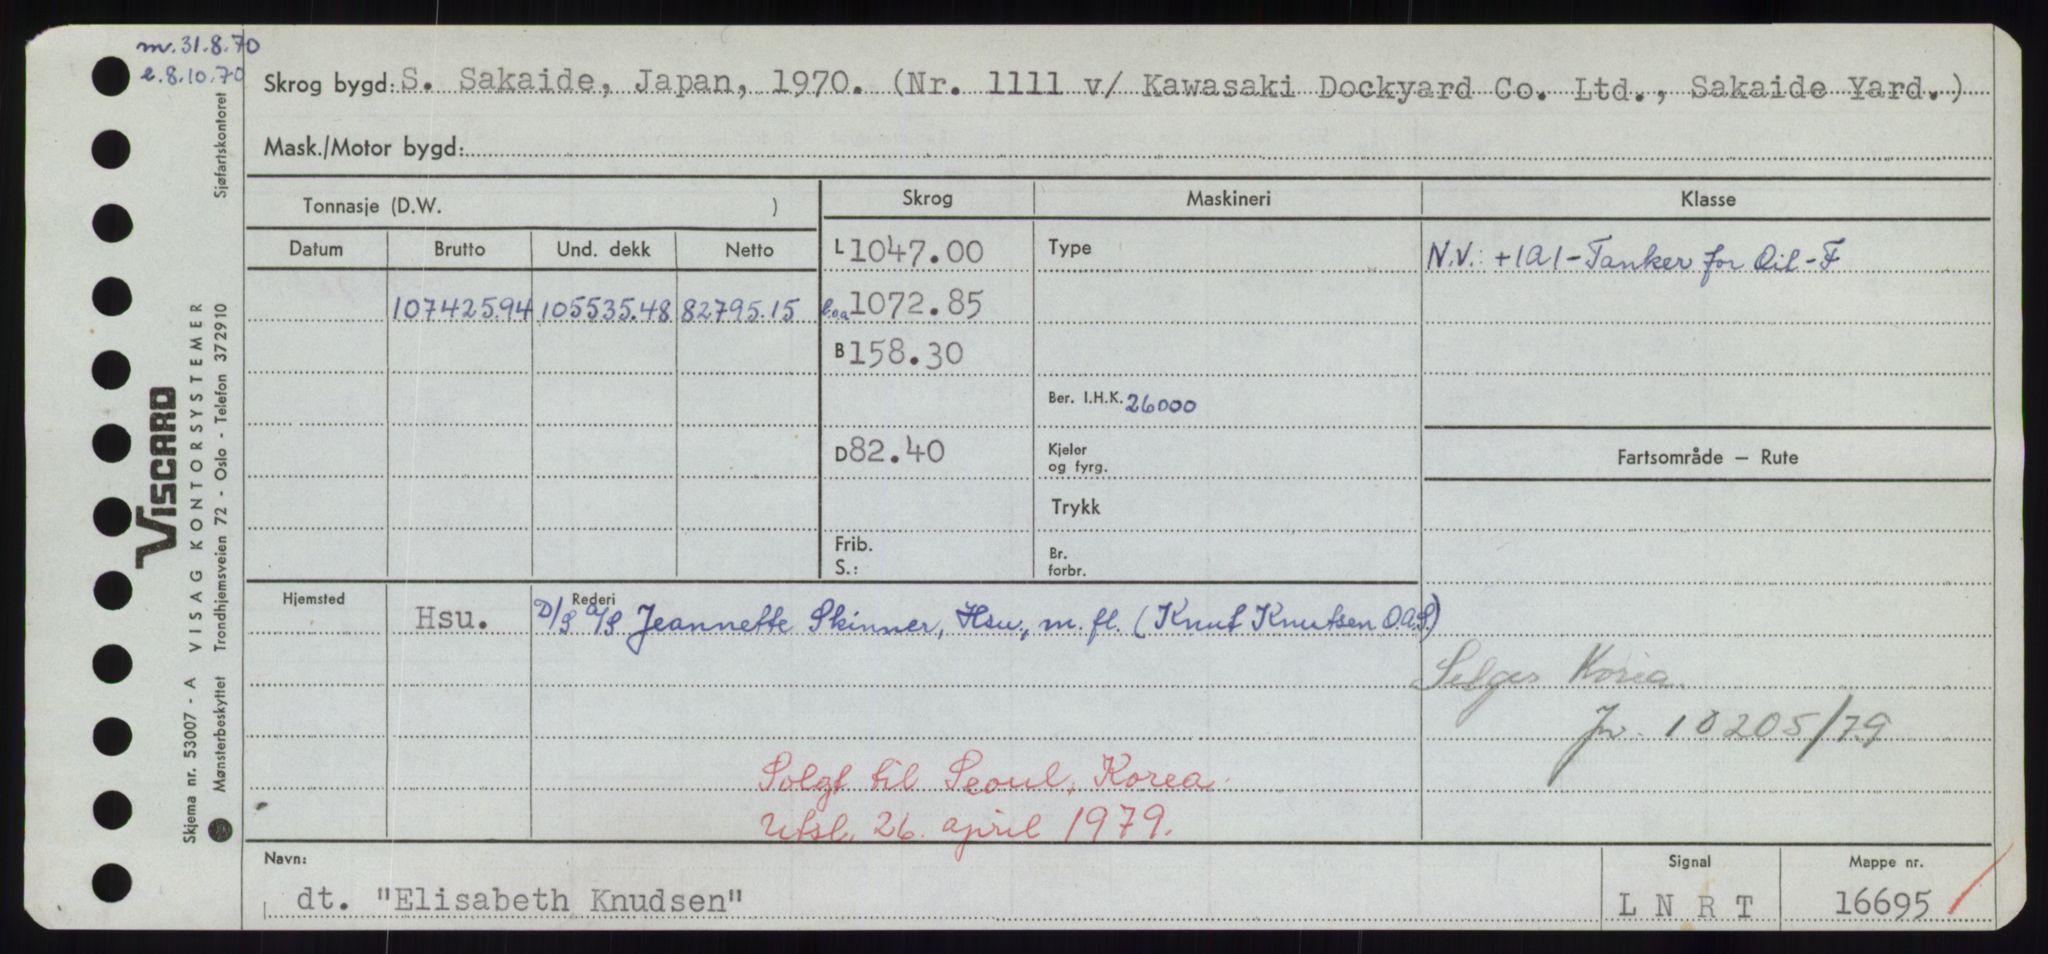 m. 31.8.70
e. 8.10.70
Skrog bygd: S. Sakaide, Japan, 1970. (Nr. 1111 v/ Kawasaki Dockyard Co. Ltd., Sakaide Yard.)
Mask./Motor bygd:
Tonnasje (D.W. )
Skrog Maskineri Klasse
Datum Brutto Und. dekk Netto
L 1047.00 Type N.V.: +1A1-Tanker for Oil-F
107425.94 105535.48 82795.15 l.o.a 1072.85
B 158.30
Ber. I.H.K. 26000
D 82.40 Kjeler og fyrg.
Fartsområde — Rute
Trykk
Frib.
S.:
Br. forbr.
Hjemsted Hsu. Rederi D/S A/S Jeannette Skinner, Hsu., m.fl. (Knut Knutsen O.A.S.)
Selges Korea.
Jr. 10205/79
Solgt til Seoul, Korea.
Utsl. 26. april 1979.
Navn: dt. "Elisabeth Knudsen"
Signal L N R T
Mappe nr. 16695
VISCARD
VISAG KONTORSYSTEMER
Skjema nr. 53007 - A
Mønsterbeskyttet Trondhjemsveien 72 - Oslo - Telefon 372910
Sjøfartskontoret